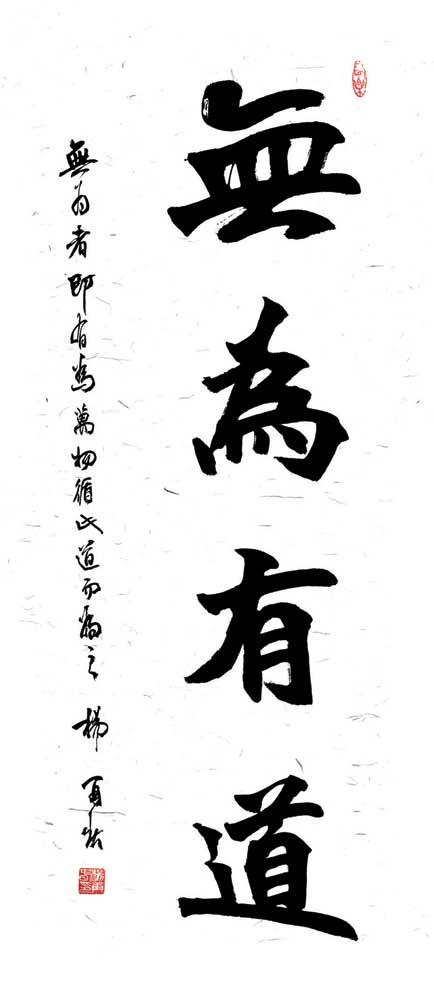 無為有道
無为者即有為萬物循此道而為之 楊